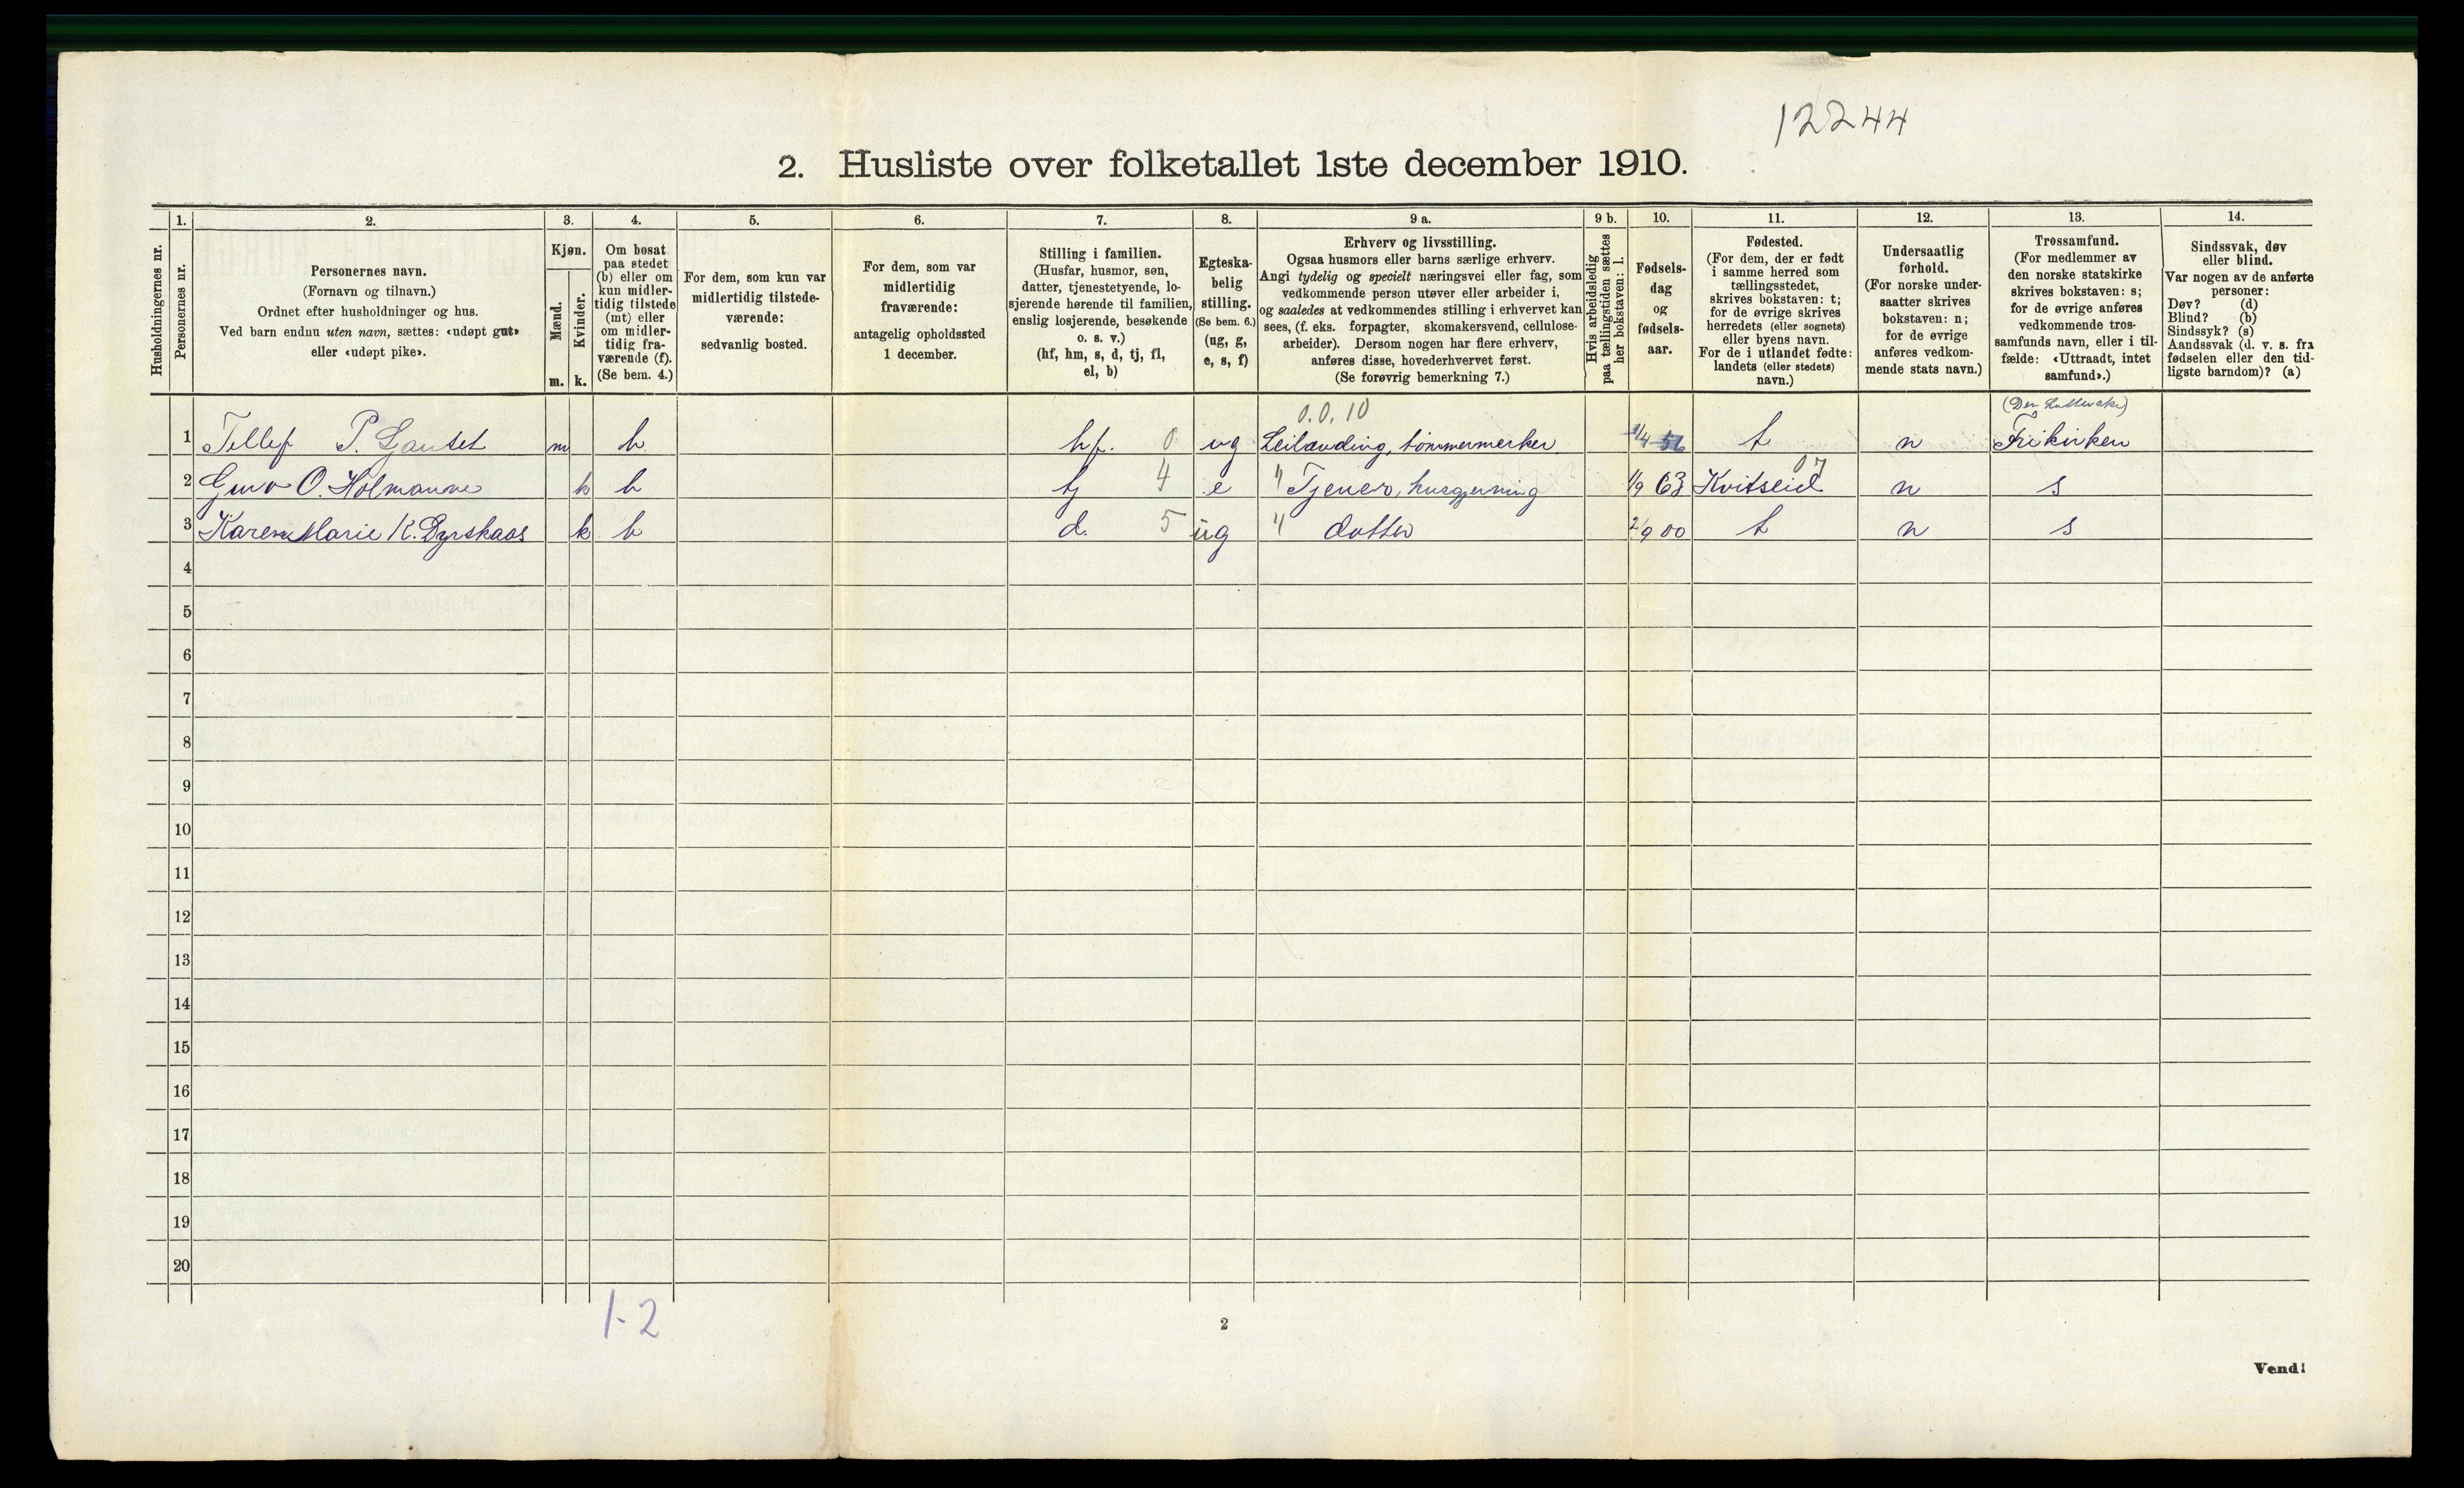 12244
2. Husliste over folketallet 1ste december 1910.
Husholdningernes nr.
1. Personernes nr.
2. Personernes navn. (Fornavn og tilnavn.) Ordnet efter husholdninger og hus. Ved barn endnu uten navn, sættes: «udøpt gut» eller «udøpt pike».
3. Kjøn. Mænd. m. Kvinder. k.
4. Om bosat paa stedet (b) eller om kun midler-tidig tilstede (mt) eller om midler-tidig fra-værende (f). (Se bem. 4.)
5. For dem, som kun var midlertidig tilstede-værende: sedvanlig bosted.
6. For dem, som var midlertidig fraværende: antagelig opholdssted 1 december.
7. Stilling i familien. (Husfar, husmor, søn, datter, tjenestetyende, lo-sjerende hørende til familien, enslig losjerende, besøkende o. s. v.) (hf, hm, s, d, tj, fl, el, b)
8. Egteska-belig stilling. (Se bem. 6.) (ug, g, e, s, f)
9 a. Erhverv og livsstilling. Ogsaa husmors eller barns særlige erhverv. Angi tydelig og specielt næringsvei eller fag, som vedkommende person utøver eller arbeider i, og saaledes at vedkommendes stilling i erhvervet kan sees, (f. eks. forpagter, skomakersvend, cellulose-arbeider). Dersom nogen har flere erhverv, anføres disse, hovederhvervet først. (Se forøvrig bemerkning 7.)
9 b. Hvis arbeidsledig paa tællingstiden sættes her bokstaven: l.
10. Fødsels-dag og fødsels-aar.
11. Fødested. (For dem, der er født i samme herred som tællingsstedet, skrives bokstaven: t; for de øvrige skrives herredets (eller sognets) eller byens navn. For de i utlandet fødte: landets (eller stedets) navn.)
12. Undersaatlig forhold. (For norske under-saatter skrives bokstaven: n; for de øvrige anføres vedkom-mende stats navn.)
13. Trossamfund. (For medlemmer av den norske statskirke skrives bokstaven: s; for de øvrige anføres vedkommende tros-samfunds navn, eller i til-fælde: «Uttraadt, intet samfund».)
14. Sindssvak, døv eller blind. Var nogen av de anførte personer: Døv? (d) Blind? (b) Sindssyk? (s) Aandssvak (d. v. s. fra fødselen eller den tid-ligste barndom)? (a)
0.0.10
1 Tellef P. m b hf. 0 ug Leilænding, tømmermerker 56 t n Frikirken
2 O. Holmanne k b tj 4 e " Tjener, husgjerning 1/9 63 Kvitseid 07 n s
3 Karen Marie K. Dyrskaos k b d. 5 ug " datter 2/9 00 t n s
4
5
6
7
8
9
10
11
12
13
14
15
16
17
18
19
20
1-2
2
Vend!